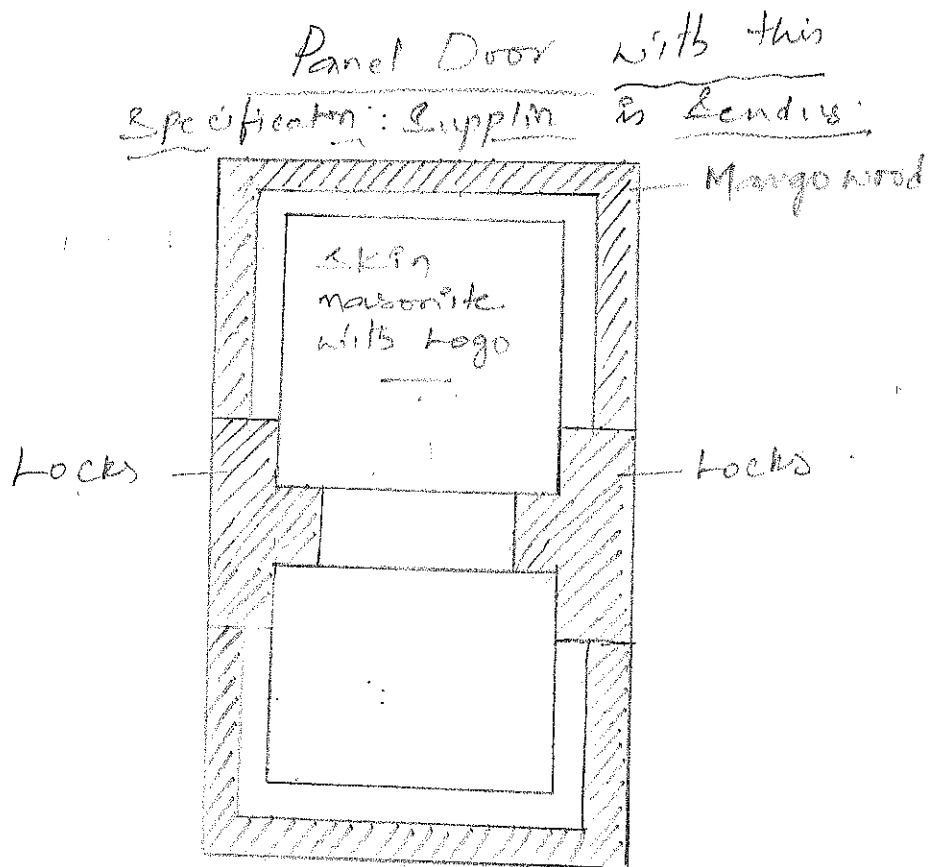 Panel Door with this
Specification: Supplier is Sending.
Mangowood
Skin
masonite
with Logo
Locks
Locks